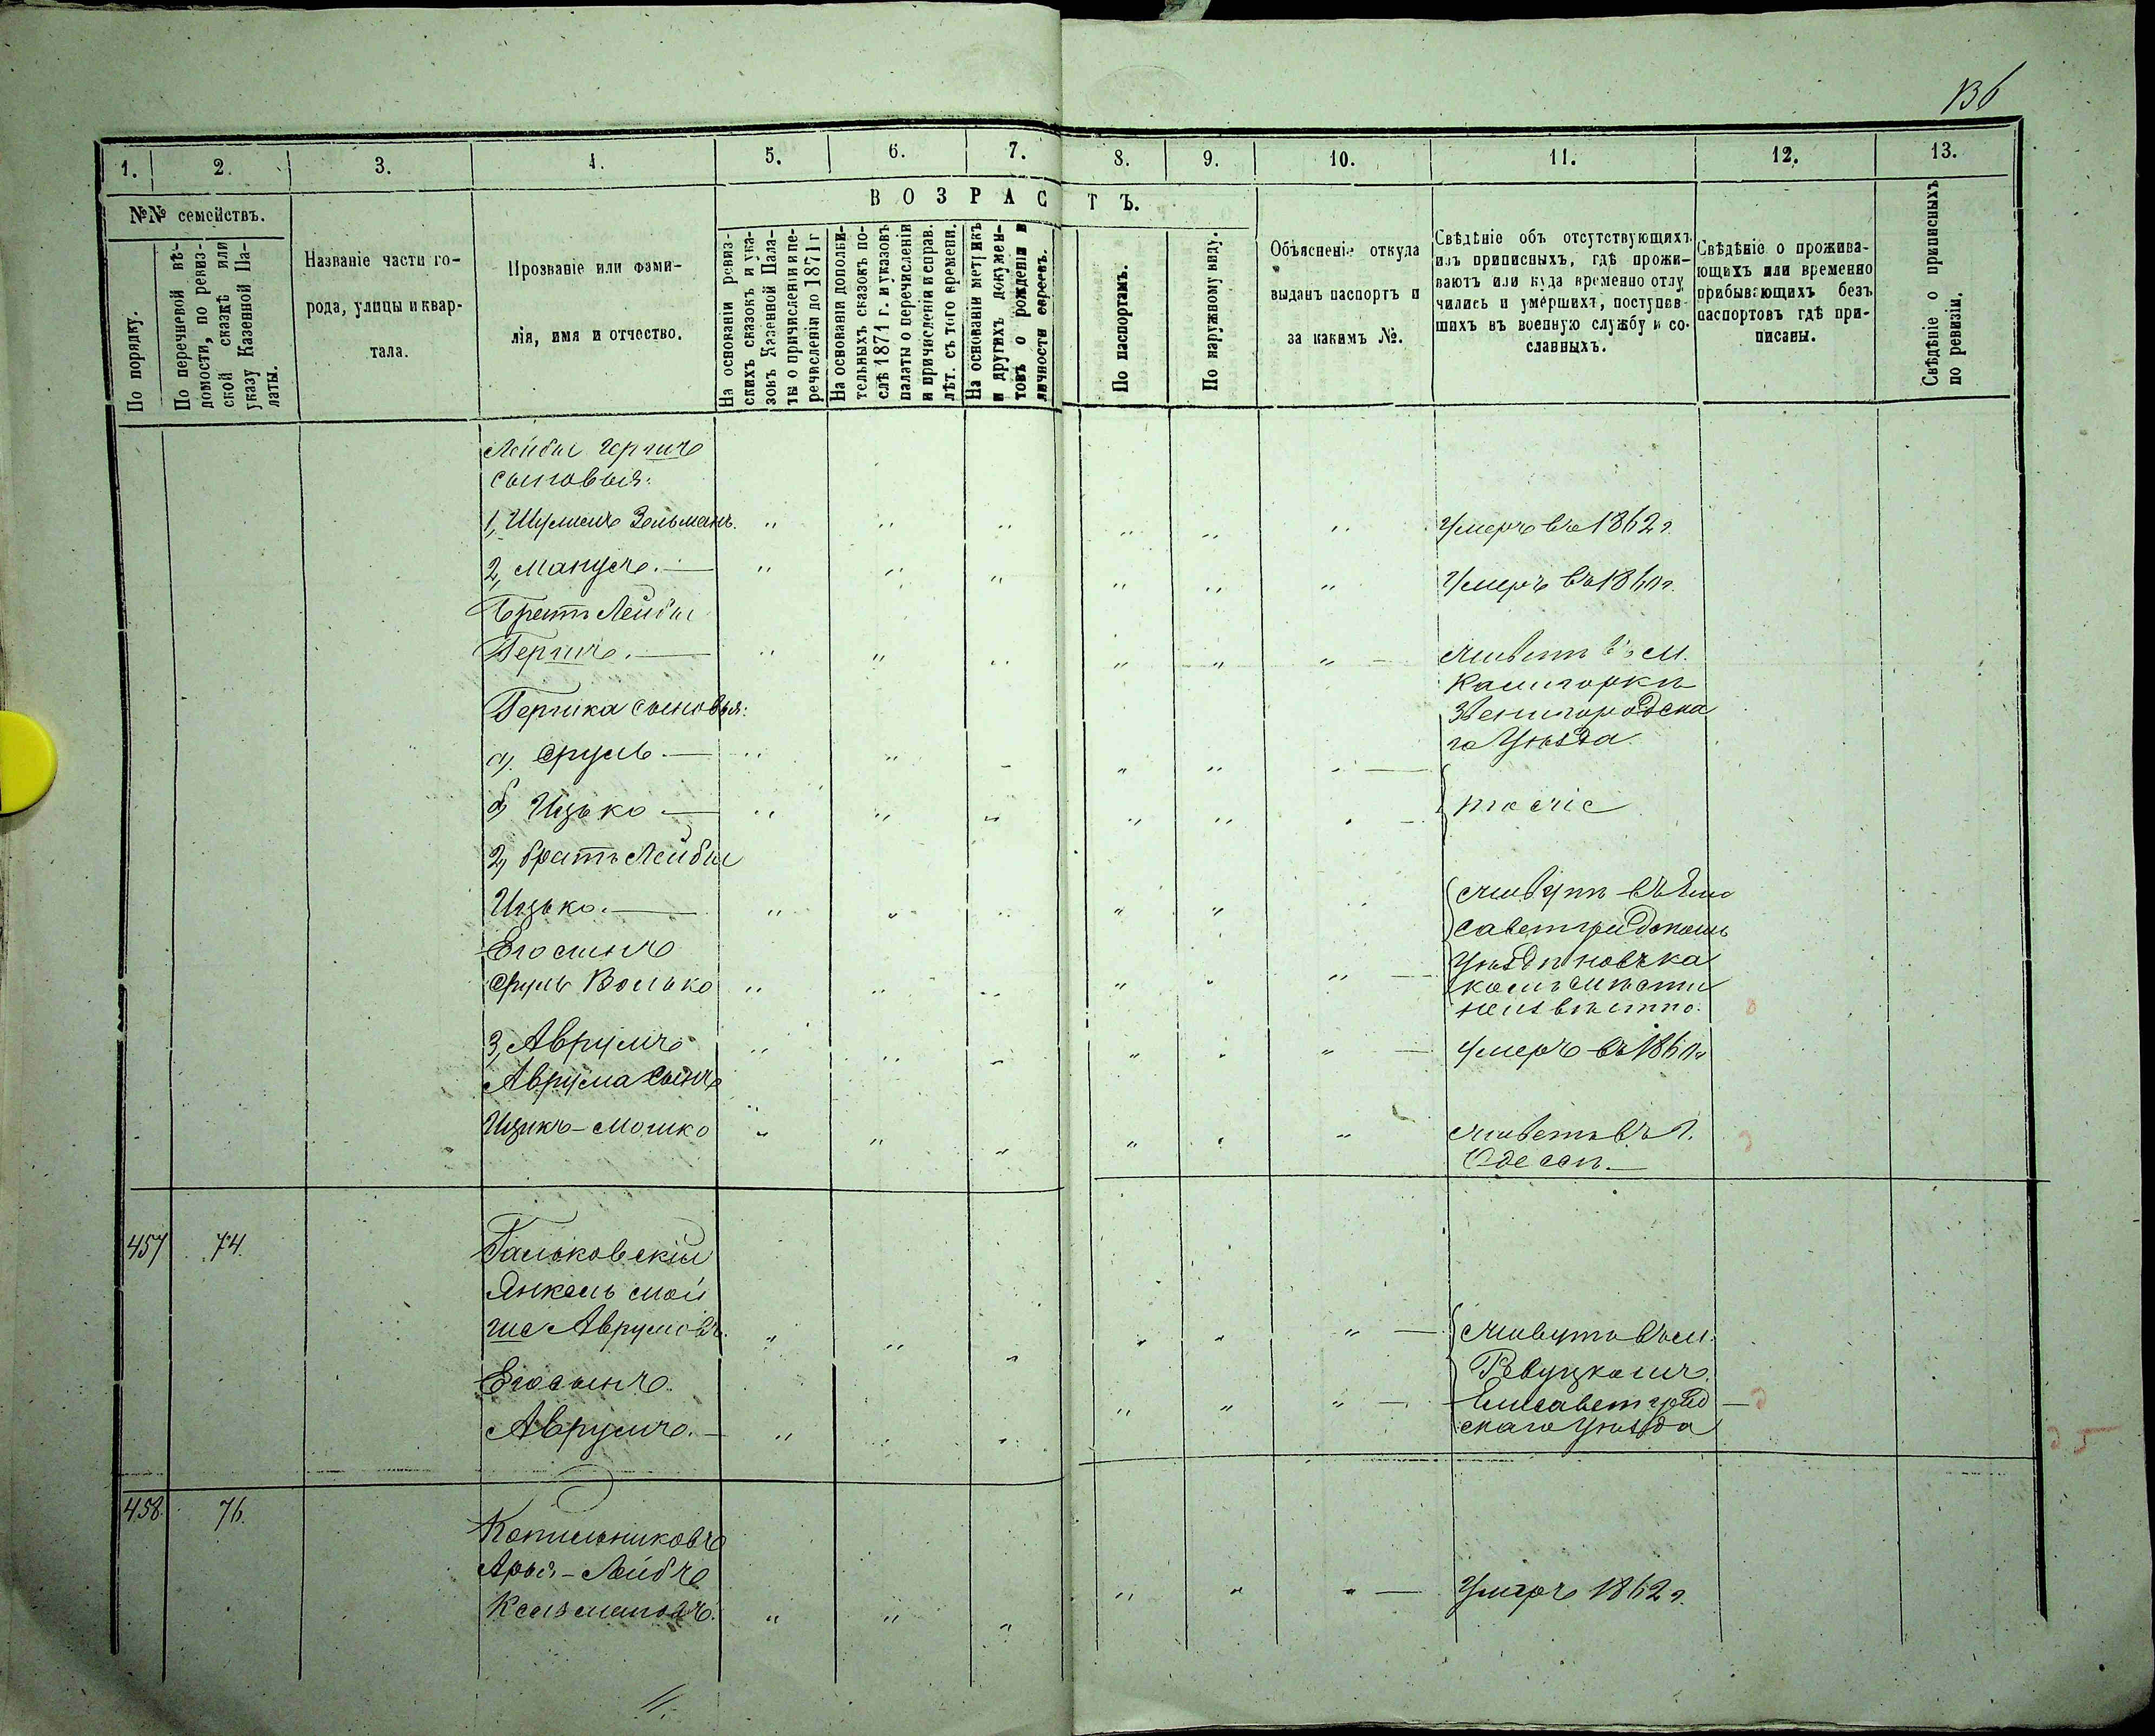 136
1.
2.
3.
4.
5.
6.
7.
8.
9.
10.
11.
12.
13.
№№ семействъ.
ВОЗРАСТЪ.
По порядку.
По перечневой вѣ-
домости, по ревиз-
ской сказкѣ или
указу Казенной Па-
латы.
Названіе части го-
рода, улицы и квар-
тала.
Прозваніе или фами-
лія, имя и отчество.
На основаніи ревиз-
скихъ сказокъ и ука-
зовъ Казенной Пала-
ты о причисленіи и пе-
речисленіи до 1871 г
На основаніи дополни-
тельныхъ сказокъ по-
слѣ 1871 г. и указовъ
палаты о перечисленіи
и причисленіи и справ.
лѣт. съ того времени.
На основаніи метрикъ
и другихъ докумен-
товъ о рожденіи и
личности евреевъ.
По паспортамъ.
По наружному виду.
Объясненіе откуда
выданъ паспортъ и
за какимъ №.
Свѣдѣніе объ отсутствующихъ
изъ приписныхъ, гдѣ прожи-
ваютъ или куда временно отлу
чились и умершихъ, поступив-
шихъ въ военную службу и со-
сланныхъ.
Свѣдѣніе о прожива-
ющихъ или временно
прибывающихъ безъ
паспортовъ гдѣ при-
писаны.
Свѣдѣніе о приписныхъ
по ревизіи.
Лейбы Гершъ
сыновья:
1, Шулимъ Зельманъ. Умеръ въ 1862 г.
2, Манусъ. Умеръ въ 1860 г.
Братъ Лейбы
Гершъ. Живетъ въ м.
Калигоркѣ
Гершка сыновья: Звенигородска
го Уѣзда.
а, Сруль
б, Ицько тоже
2, братъ Лейбы
Ицько. Живутъ въ Ели
саветградскомъ
Его сынъ
Уѣздѣ но въ ка
Сруль Волько комъ мѣстѣ
неизвѣстно.
3, Аврумъ Умеръ въ 1860 г.
Аврума сынъ
Ицикъ-Мошко Живетъ въ г.
Одессѣ.
457 74. Гальковскій
Янкель Мой
ше Аврумовъ. Живутъ въ м.
Ревуцкомъ
Его сынъ Елисаветград
Аврумъ. скаго Уѣзда
458. 76. Копильниковъ
Арья-Лейбъ
Кельмановъ. Умеръ 1862 г.